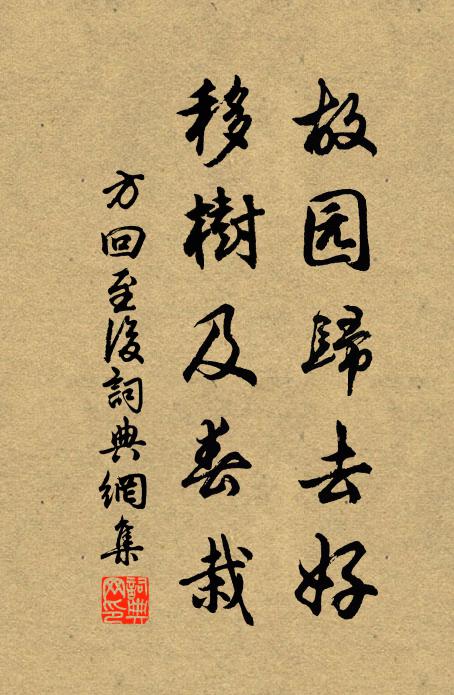 故园歸去好
移樹及春栽
方回至後詞典網集
詞典网印